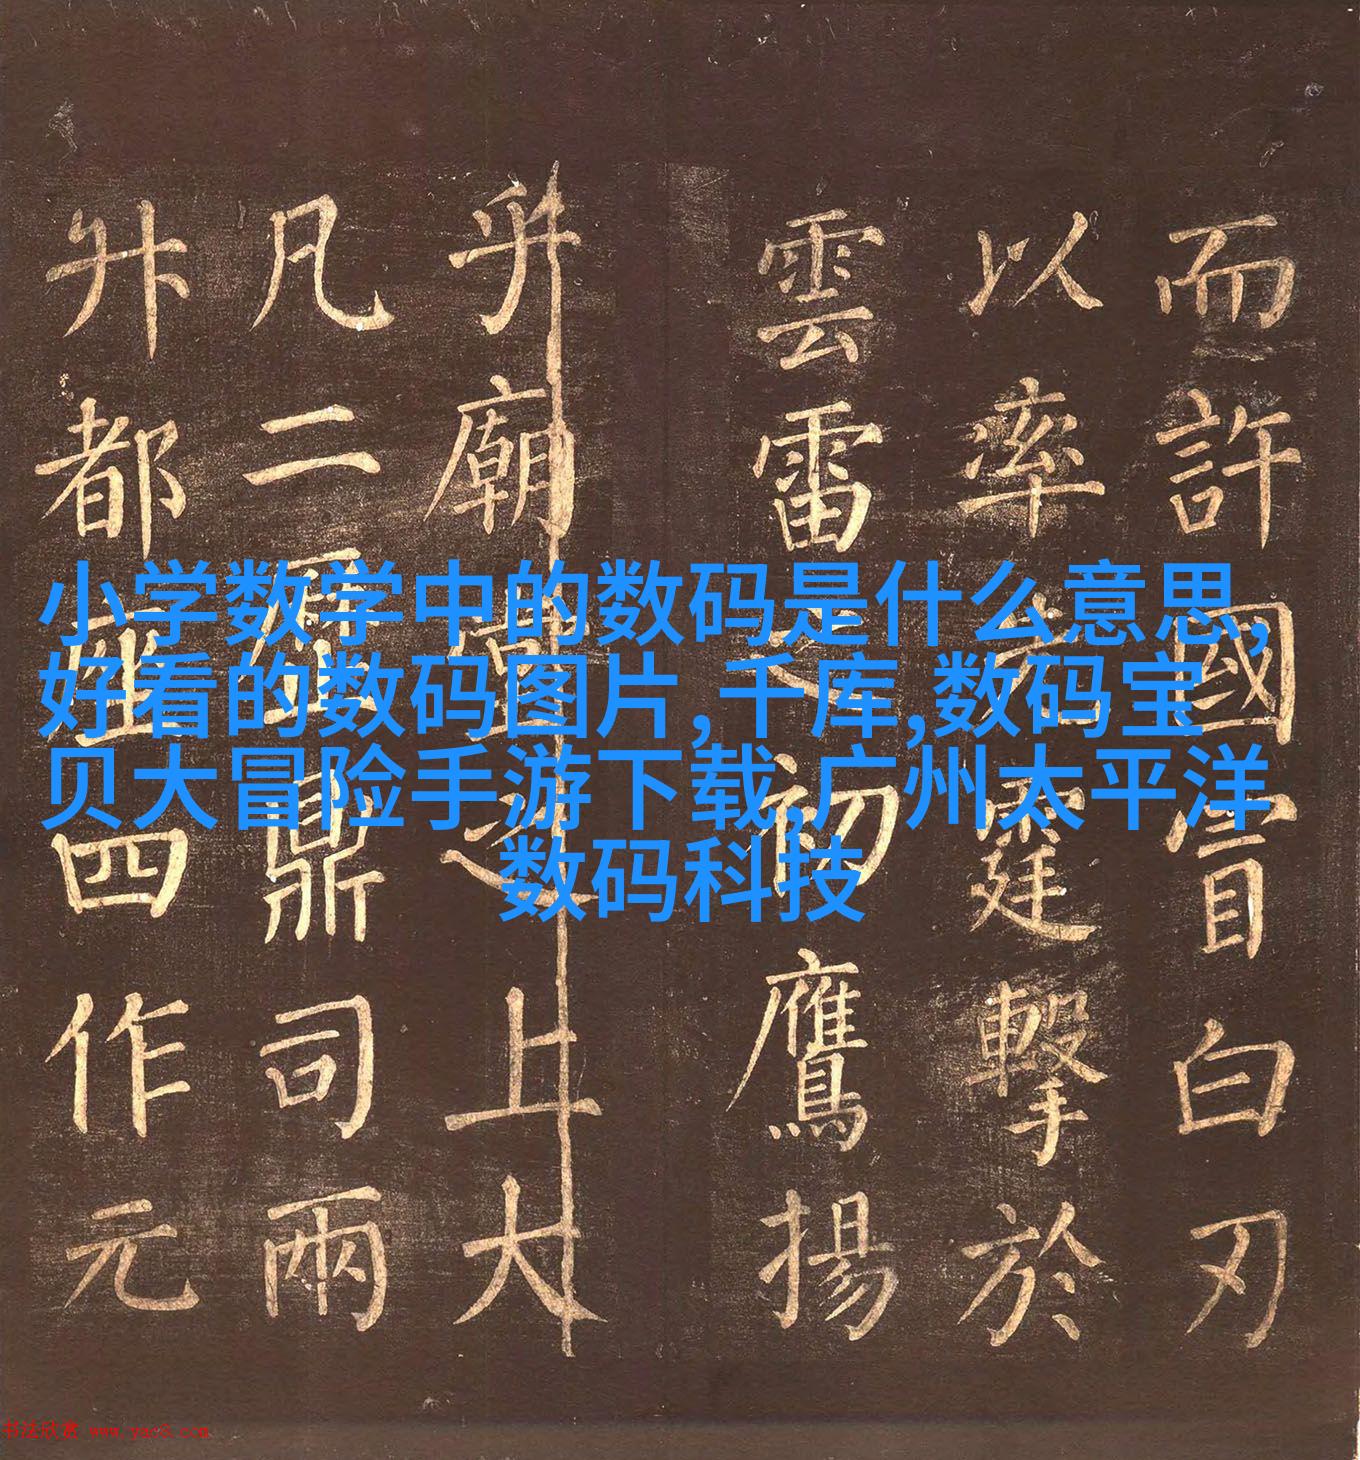 而許國冒白刃
以率先霆擊於
雲雷之初鷹揚
乎廟堂之上大
凡二鼎司兩
升都座四作元
小学数学中的数码是什么意思,
好看的数码图片,千库,数码宝
贝大冒险手游下载,广州太平洋
数码科技
书法欣赏 www.yac8.com